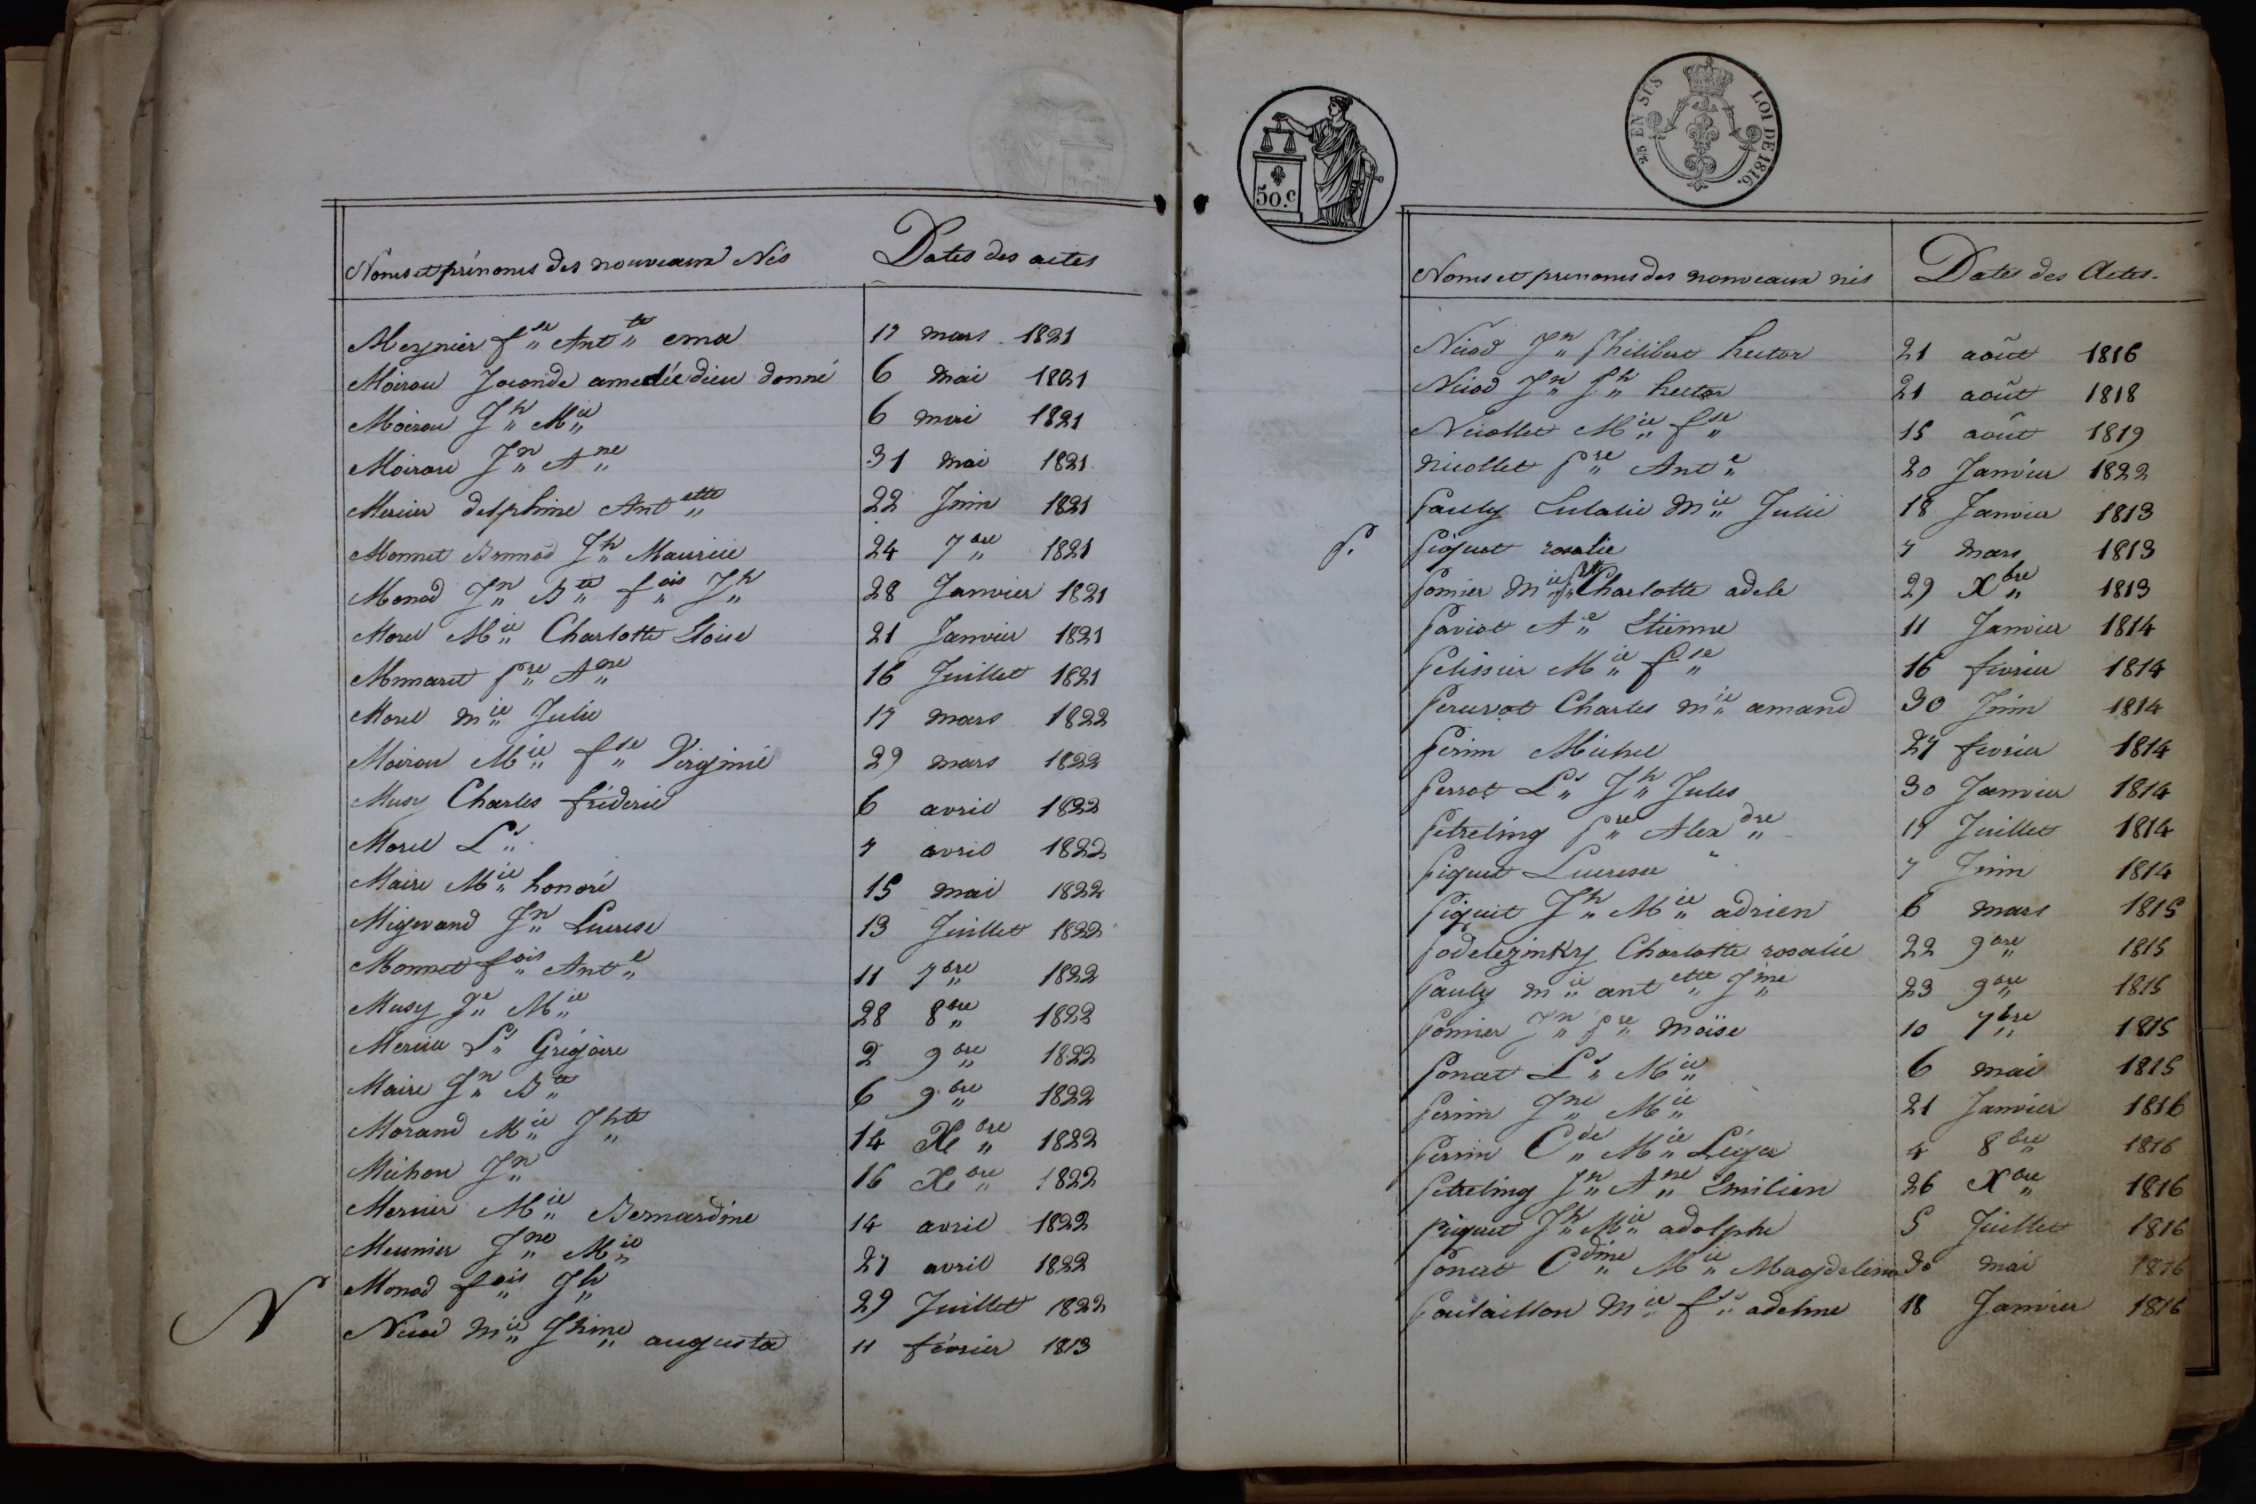 Noms et prénoms des nouveaux Nés Dates des actes
Meynier fse Antte ema 17 mars 1821
Moirou Joconde amedée dieu donné 6 mai 1821
Moirou Jh Mie 6 mai 1821
Moirou Jn Ane 31 mai 1821
Mercier delphine Antette 22 Juin 1821
Monnet Jh Maurice 24 7bre 1821
Monod Jn Bte fois Jh 28 Janvier 1821
Morel Mie Charlotte Eloise 21 Janvier 1821
Mmaret Pre Ane 16 Juillet 1821
Morel mie Julie 17 mars 1822
Moirou Mie fse Virginie 29 mars 1822
Musy Charles fréderic 6 avril 1822
Morel Ls 7 avril 1822
Maire Mie honoré 15 mai 1822
Migerand Jn Lucrese 13 Juillet 1822
Monnet fois Ante 11 7bre 1822
Musy Je Mie 28 8bre 1822
Mercier Ls Grégoire 2 9bre 1822
Maire Jn Bte 6 9bre 1822
Morand Mie Jhte 14 Xbre 1822
Michon Jn 16 Xbre 1822
Mernier Mie Bernardine 14 avril 1822
Meunier Jne Mie 27 avril 1822
Monod fois Jh 29 Juillet 1822
N Nicod mie Jhine augusta 11 février 1813
50.C
25 EN SUS LOI DE 1816.
Noms et prenoms des nouveaux nés Dates des Actes.
Nicod Jn Philibert hector 21 août 1816
Nicod Jn Jh hector 21 août 1818
Nicollet Mie fse 15 août 1819
nicollet Pre Ante 20 Janvier 1822
Pauly Eulalie mie Julie 18 Janvier 1813
P. Piquet rosalie 7 mars 1813
Pomier mie Charlotte adele 29 Xbre 1813
Paviot Ae Etienne 11 Janvier 1814
Pelissier Mie fse 16 fevrier 1814
Perurot Charles mie amand 30 Juin 1814
Perrin Michel 27 fevrier 1814
Perrot Ls Jh Jules 30 Janvier 1814
Petreling Pre Alexdre 17 Juillet 1814
Piquet Lucrese 7 Juin 1814
Piquet Jh Mie adrien 6 mars 1815
Podelezinky Charlotte rosalie 22 9bre 1815
Pauly mie antette Jme 23 9bre 1815
Pomier Jn Pre moïse 10 7bre 1815
Poncet Ls Mie 6 mai 1815
Perrin Jne Mie 21 Janvier 1816
Perrin Cde Mie Léga 4 8bre 1816
Petreling Jn Ane Emilien 26 Xbre 1816
piquet Jh Mie adolphe 5 Juillet 1816
Poncet Cdine Mie Magdeleine 30 mai 1816
Poulaillon mie fse adeline 18 Janvier 1816